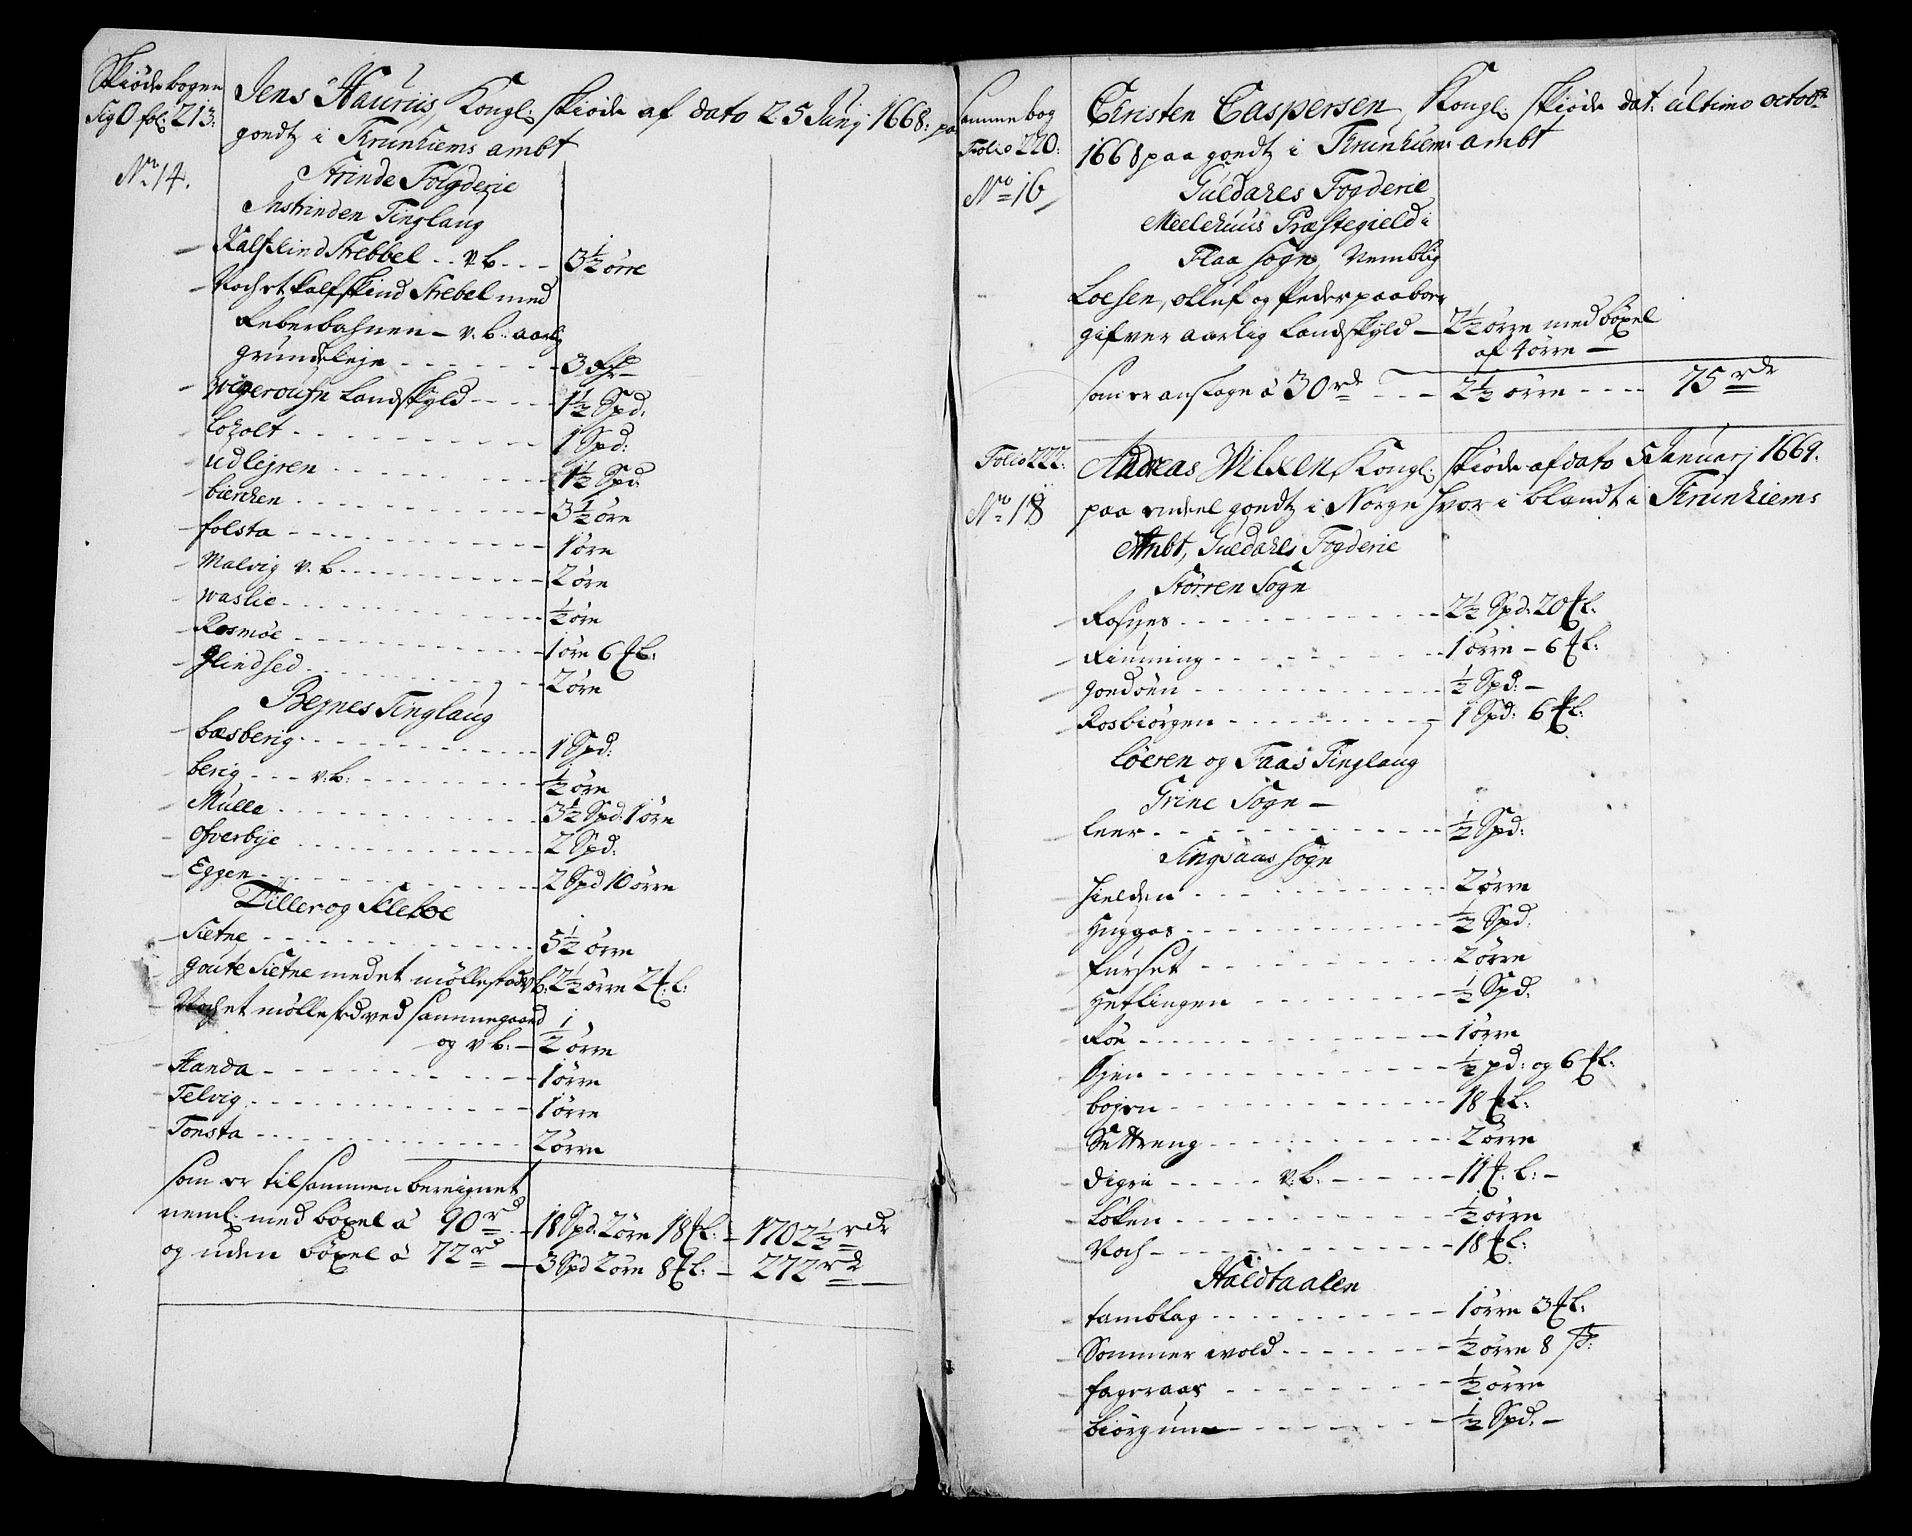 Skiøde bogen
Sig O fol: 213:
No 14.
Jens Hauriis, Kongl: Skiøde af dato 25 Junij 1668: paa
goudtz i Trunhiems ambt
Strinde Fogderie
Instrinden Tinglaug
Kalfskind Strebbel .. v. b. 3½ ørre
Noch et Kalfskind Strebel med
Reberbahnen - v. b: aarlig
grundeleje 3
Landskyld 1½ Spd:
loholt 1 Spd:
udlejren 1½ Spd:
bierchen 3½ øre
folsta 1 øre
Malvig v. b. 2 øre
waslie ½ øre
Rosmøe 1 øre 6 ℔:
glindsed 2 øre
Bejnes Tinglaug
bæsberig 1 Spd:
berig v: b: ½ øre
Mulle 3½ Spd: 1 øre
ofverbye 2 Spd:
Eggen 2 Spd 10 ørre
Tiller og Kleboe
Sietne 5½ ørre
goute Sietne med et møllestad v b: 2½ ørre 2 ℔:
Noch et møllested ved samme gaard
og v b: ½ ørre
Handa 1 ørre
Telvig 1 ørre
Tonsta 2 ørre
som er tilsammen bereignet
neml: med bøxel à 90 rd 18 Spd: 2 øre 18 ℔: 1702½ rdr
og uden bøxel à 72 rd 3 Spd 2 øre 8 ℔: 272 rd
Samme bog
Folio 220:
No 16
Christen Caspersen, Kongl: Skiøde dat: ultimo octobr
1668 paa goudtz i Trunhiems ambt
Guldahls Fogderie
Meelehuus Præstegield i
Flaa Sogn, Nemblig
Loesen, olluf og Peder paaboer
gifver aarlig Landskyld - 2½ ørre med bøxel
af 4 ørre -
som er anslagne à 30 rdr 2½ ørre 75 rdr
Folio 222:
No 18
Andreas Nilsen, Kongl: Skiøde af dato 5 Januarj 1669.
paa endeel goudtz i Norge hvor i blandt i Trunhiems
Ambt, Guldahls Fogderie
Størren Sogn
Rosnes 2½ Spd: 20 ℔:
Rimming 1 ørre - 6 ℔:
goedøen ½ Spd: -
Rosbiørgen 1 Spd: 6 ℔:
Løeren og Faas Tinglaug
Grine Sogn -
leer ½ Spd:
Singsaas Sogn
hielden 2 ørre
Huggas ½ Spd:
furset 2 ørre
Hetlingen ½ Spd:
Røe 1 ørre
Sjen ½ pd: og 6 ℔:
bojen 18 ℔:
Settreng 2 ørre
digre v. b. 11 ℔: -
Løken ½ ørre
Noch 18 ℔:
Holdtaalen
tamblag 1 ørre 3 ℔:
Sommerwold ½ ørre 8
fageraas ½ ørre
biørgum ½ Spd: -